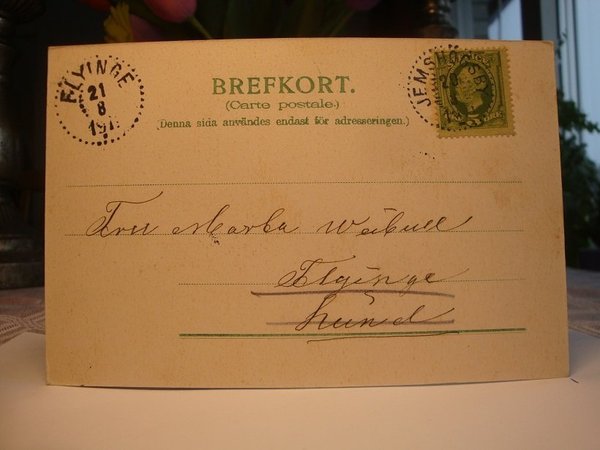 FLYINGE
21
8
BREFKORT.
(Carte postale.)
(Denna sida användes endast för adresseringen.)
JEMSHÖGSBY
Fru Marta Weibull
Flyinge
Lund